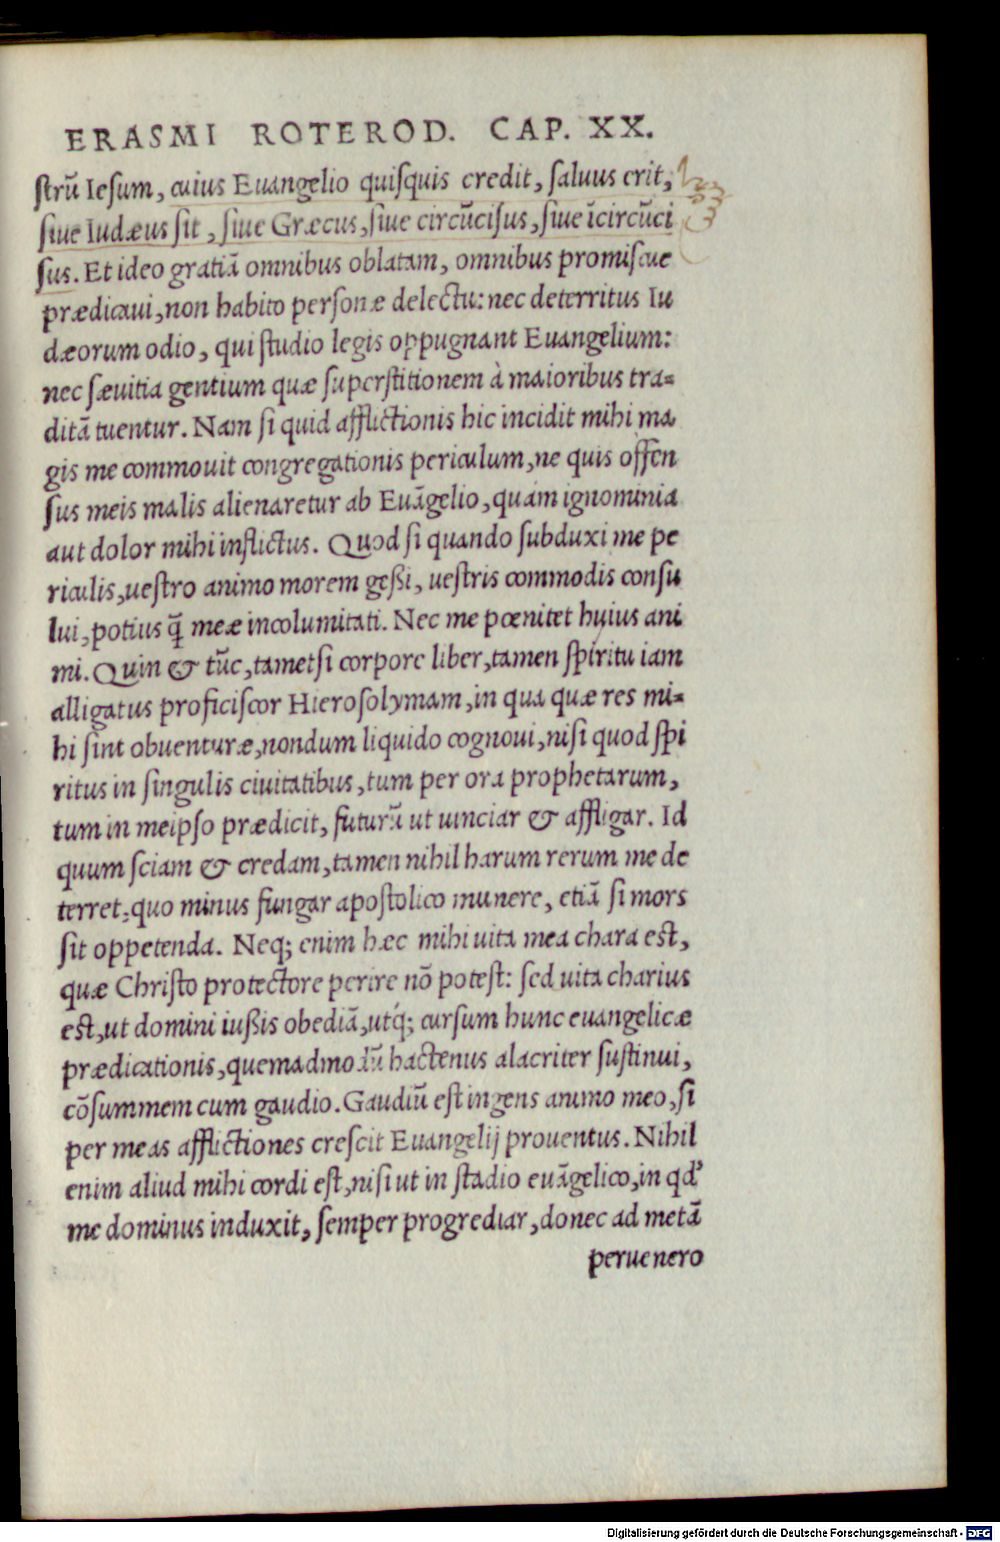 ERASMI ROTEROD. CAP. XX.
ſtrū Ieſum, cuius Euangelio quiſquis credit, ſaluus erit,
ſiue Iudæus ſit, ſiue Græcus, ſiue circūciſus, ſiue īcircūci
ſus. Et ideo gratiā omnibus oblatam, omnibus promiſcue
prædicaui, non habito perſonæ delectu: nec deterritus Iu
dæorum odio, qui ſtudio legis oppugnant Euangelium:
nec ſæuitia gentium quæ ſuperſtitionem à maioribus tra=
ditā tuentur. Nam ſi quid afflictionis hic incidit mihi ma
gis me commouit congregationis periculum, ne quis offen
ſus meis malis alienaretur ab Euāgelio, quàm ignominia
aut dolor mihi inflictus. Quod ſi quando ſubduxi me pe
riculis, ueſtro animo morem geßi, ueſtris commodis conſu
lui, potius q̄ meæ incolumitati. Nec me pœnitet huius ani
mi. Quin & tūc, tametſi corpore liber, tamen ſpiritu iam
alligatus proficiſcor Hieroſolymam, in qua quæ res mi=
hi ſint obuenturæ, nondum liquido cognoui, niſi quod ſpi
ritus in ſingulis ciuitatibus, tum per ora prophetarum,
tum in meipſo prædicit, futurū ut uinciar & affligar. Id
quum ſciam & credam, tamen nihil harum rerum me de
terret, quo minus fungar apoſtolico munere, etiā ſi mors
ſit oppetenda. Neq; enim hæc mihi uita mea chara eſt,
quæ Chriſto protectore perire nō poteſt: ſed uita charius
eſt, ut domini iußis obediā, utq́; curſum hunc euangelicæ
prædicationis, quemadmodū hactenus alacriter ſuſtinui,
cōſummem cum gaudio. Gaudiū eſt ingens animo meo, ſi
per meas afflictiones creſcit Euangelij prouentus. Nihil
enim aliud mihi cordi eſt, niſi ut in ſtadio euāgelico, in qd’
me dominus induxit, ſemper progrediar, donec ad metā
peruenero
Digitalisierung gefördert durch die Deutsche Forschungsgemeinschaft - DFG